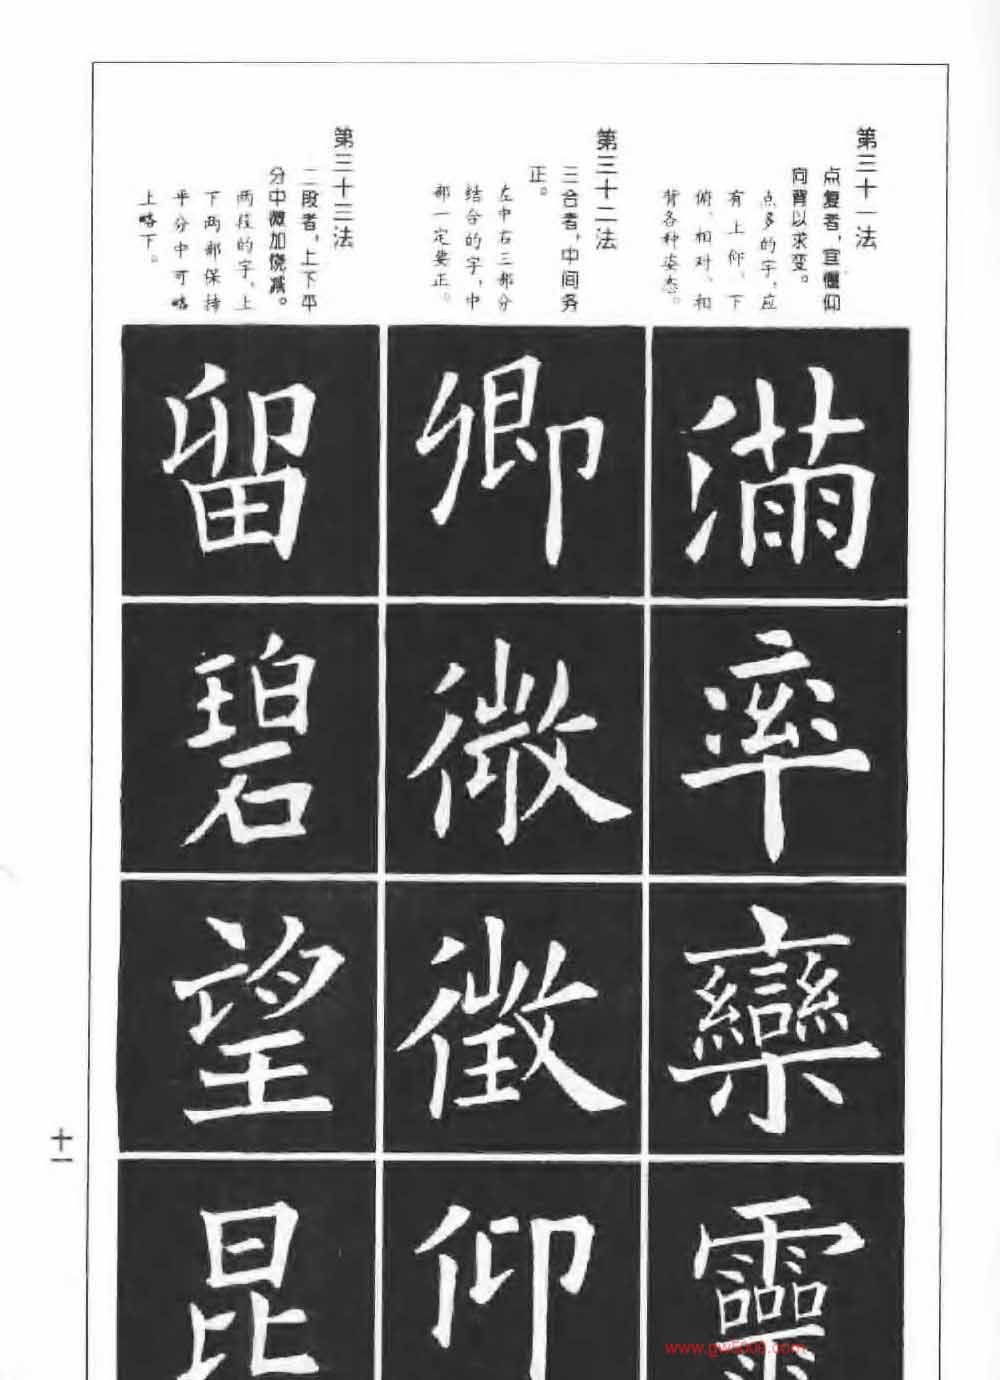 第三十一法
点复者，宜偃仰
向背以求变。
点多的字，应
有上仰、下
俯、相对、相
背各种姿态。
滿
率
欒
靈
第三十二法
三合者，中间务
正。
左中右三部分
结合的字，中
部一定要正。
卿
微
徵
仰
第三十三法
二段者，上下平
分中微加饶减。
两段的字，上
下两部保持
平分中可略
上略下。
留
碧
望
昆
十一